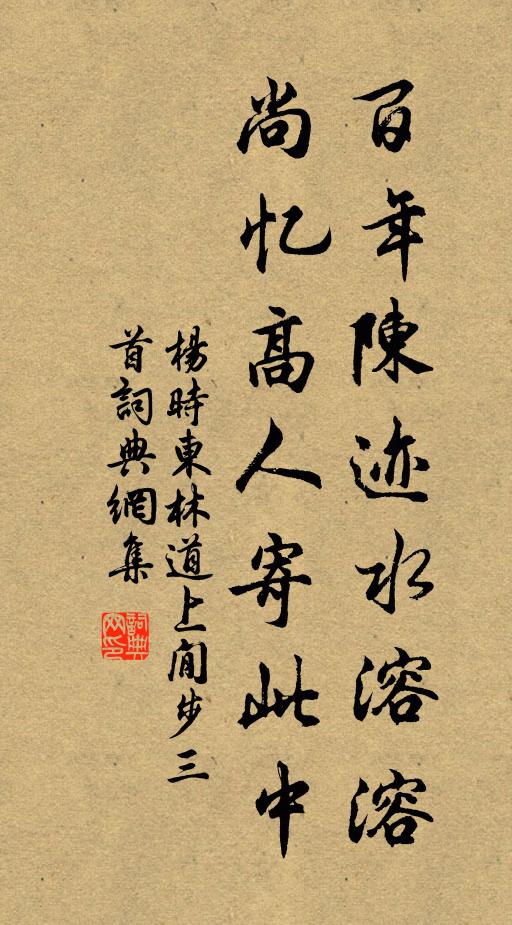 百年陳迹水溶溶
尚忆高人寄此中
楊時東林道上閒步三
首詞典網集
詞典网印